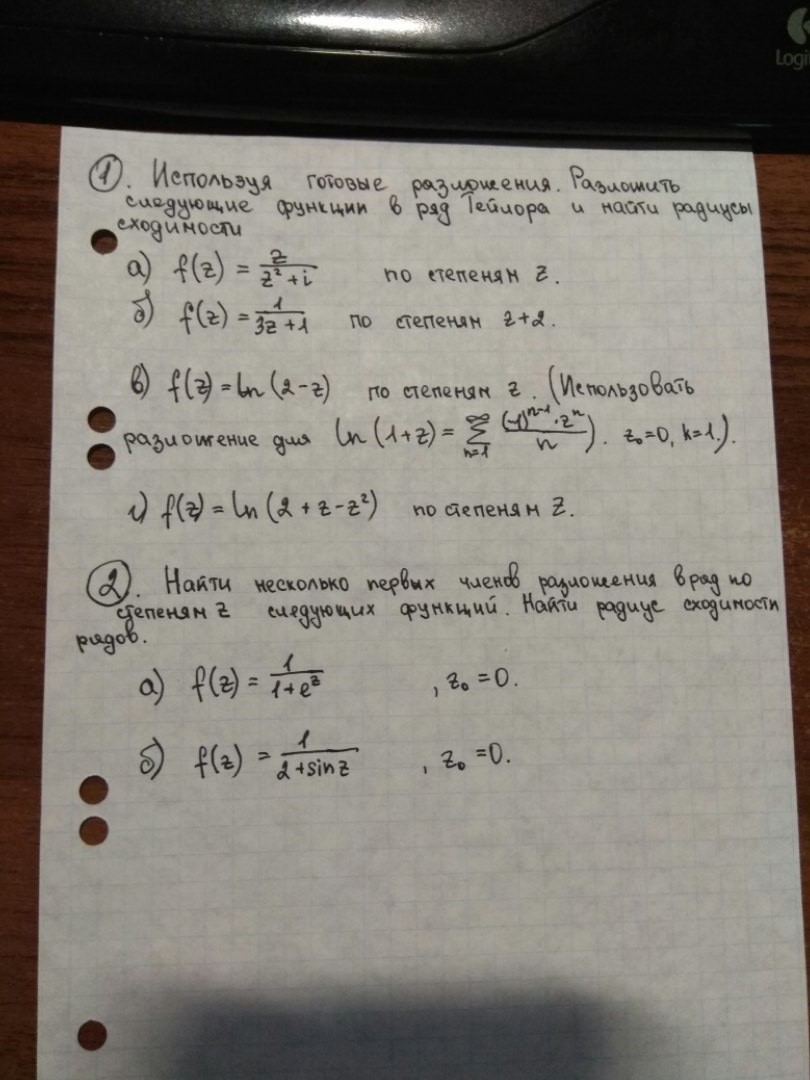 Logi
1. Используя готовые разложения. Разложить
следующие функции в ряд Тейлора и найти радиусы
сходимости
а) f(z) = z/(z²+i) по степеням z.
б) f(z) = 1/(3z+1) по степеням z+2.
в) f(z) = ln(2-z) по степеням z. (Использовать
разложение для ln(1+z) = ∑_{n=1}^{∞} ((-1)^{n-1}·z^n)/n). z₀=0, k=1.).
г) f(z) = ln(2+z-z²) по степеням z.
2. Найти несколько первых членов разложения в ряд по
степеням z следующих функций. Найти радиус сходимости
рядов.
а) f(z) = 1/(1+e^z) , z₀=0.
б) f(z) = 1/(2+sinz) , z₀=0.